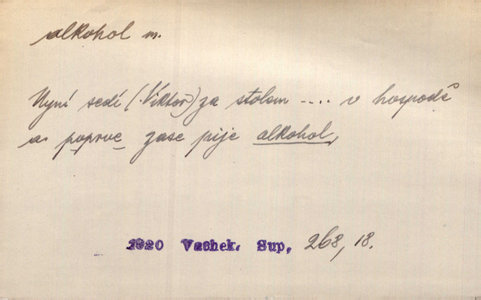 alkohol m.
Nyní sedí (Viktor) za stolem .... v hospodě
a poprve zase pije alkohol,
1920 Vachek. Sup, 268, 18.